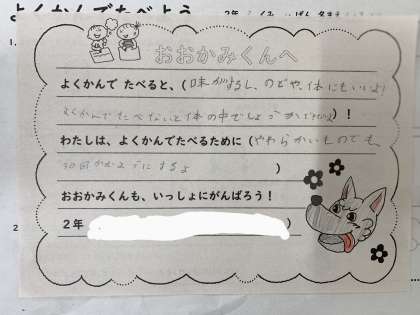 よくかんでたべよう
1.
おおかみくんへ
よくかんで たべると、(味がするし、のどや、体にもいいよ
よくかんでたべないと体の中でしょうかできないよ)！
わたしは、よくかんでたべるために(やわらかいものでも
30回かむようにするよ)
おおかみくんも、いっしょにがんばろう！
2
2年 )